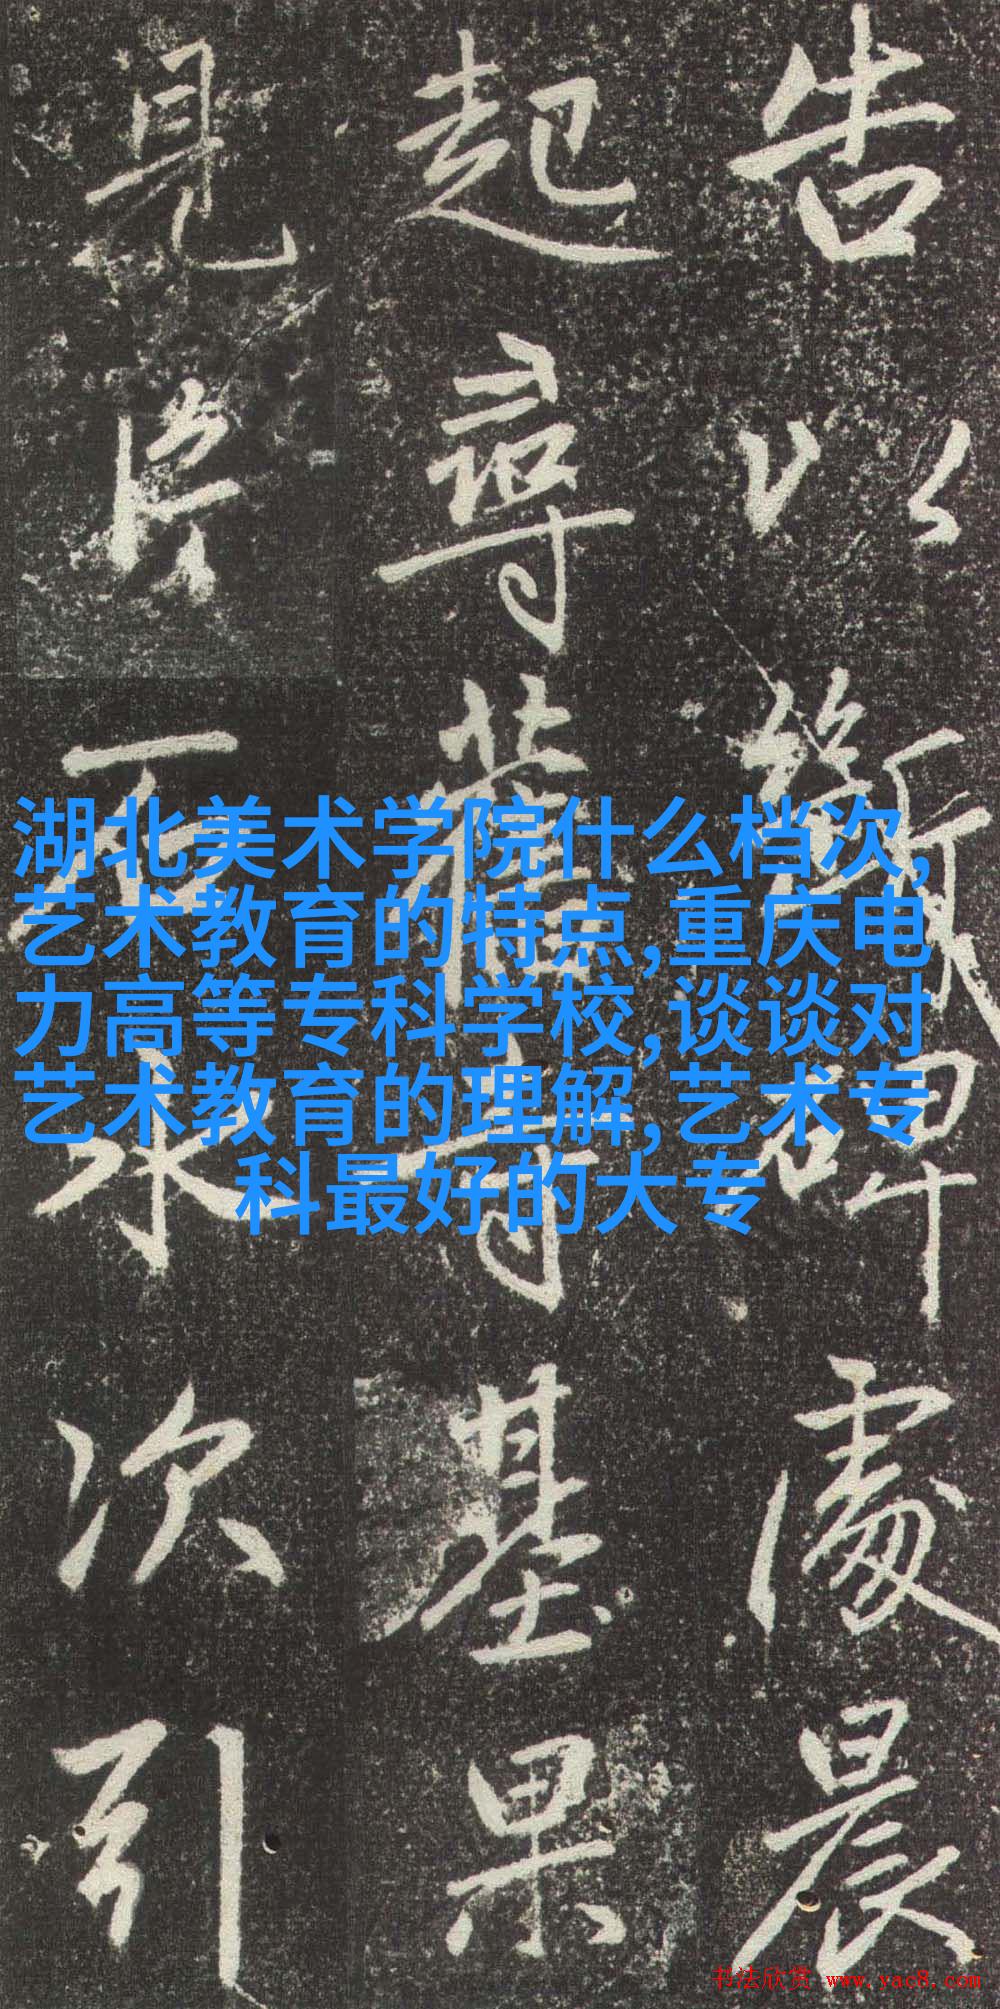 告以徵碑處晨
起尋舊寺基果
見片石次引
湖北美术学院什么档次,
艺术教育的特点,重庆电
力高等专科学校,谈谈对
艺术教育的理解,艺术专
科最好的大专
书法欣赏 www.yac8.com